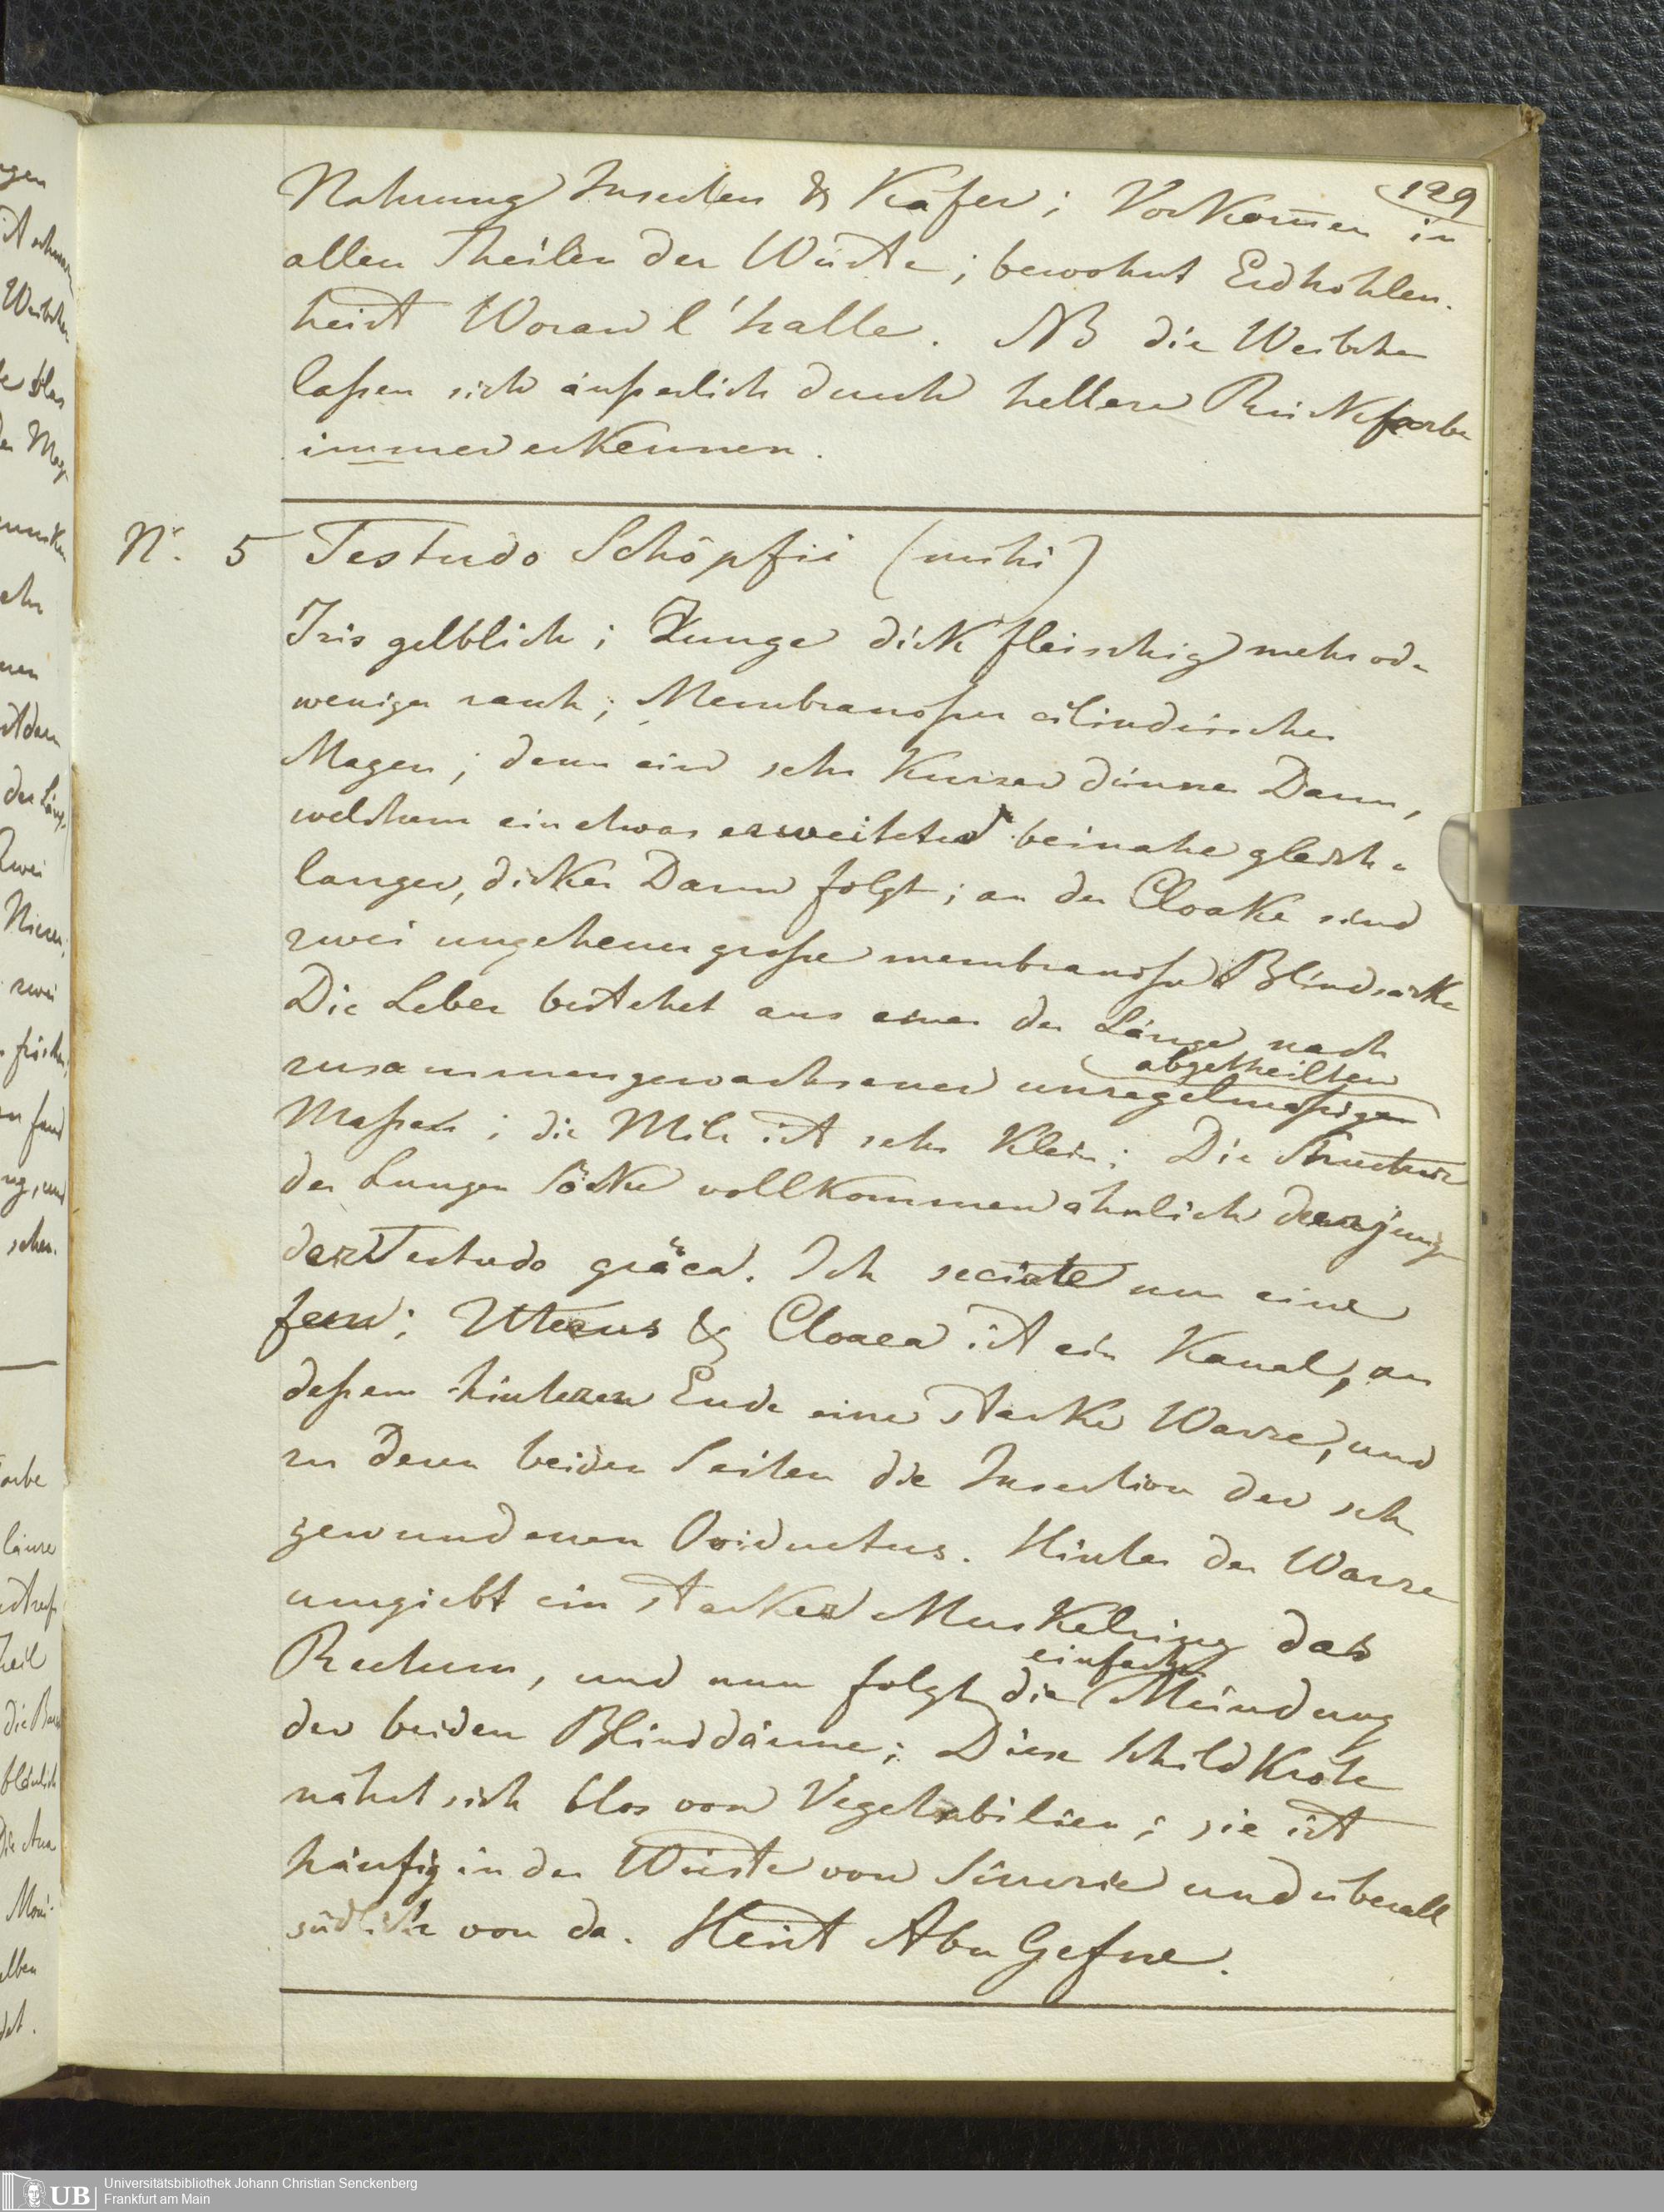 129
Nahrung Insecten & Käfer; Vorkom̄en in
allen Theilen der Wüste; bewohnt Erdhöhlen.
heist Woran l'halle. NB die Weibchen
laßen sich äußerlich durch hellere Rückfarbe
immer erkennen.
N. 5 Testudo Schöpfii (mihi)
Iris gelblich; Zunge dick fleischig mehr od.
weniger rauh; Membranoser cilindrischer
Magen; dann ein sehr kurzer dünner Darm,
welchem ein etwas erweiteter beinahe gleich-
langer, dicker Darm folgt; an der Cloake sind
zwei ungeheuer große membranöse Blindsäcke
Die Leber bestehet aus einer der Länge nach
zusammengewachsener unregelmäßigen
abgetheilten
Maßen; die Milz ist sehr klein; Die Structur
der Lungen Säcke vollkommen ähnlich derjenig
der Testudo gräca. Ich secirte nur eine
fem; Uterus & Cloaca ist ein Kanal, an
deßem hinteren Ende eine starke Warze, und
zu deren beiden Seiten die Insertion der sehr
gewundenen Oviductus. Hinter der Warze
umgiebt ein starker Muskelring das
Rectum, und nun folgt die einfache Mündung
der beiden Blinddärme; Diese Schildkröte
nährt sich blos von Vegetabilien; sie ist
häufig in der Wüste von Simrie und überall
südlich von da. Heist Abu Gefne.
UB Universitätsbibliothek Johann Christian Senckenberg
Frankfurt am Main